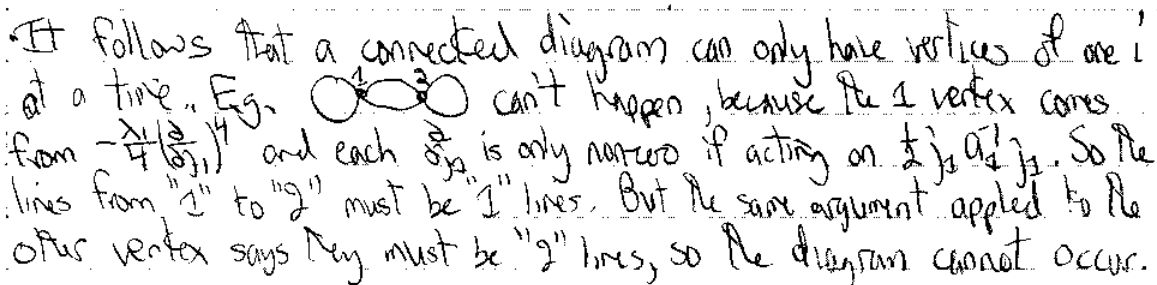 · It follows that a connected diagram can only have vertices of one i
at a time. E.g. 1 2 can't happen, because the 1 vertex comes
from -λ₁/4 (∂/∂j₁)⁴ and each ∂/∂j₁ is only nonzero if acting on ½ j₁ a₁⁻¹ j₁. So the
lines from "1" to "2" must be "1" lines. But the same argument appled to the
other vertex says they must be "2" lines, so the diagram cannot occur.